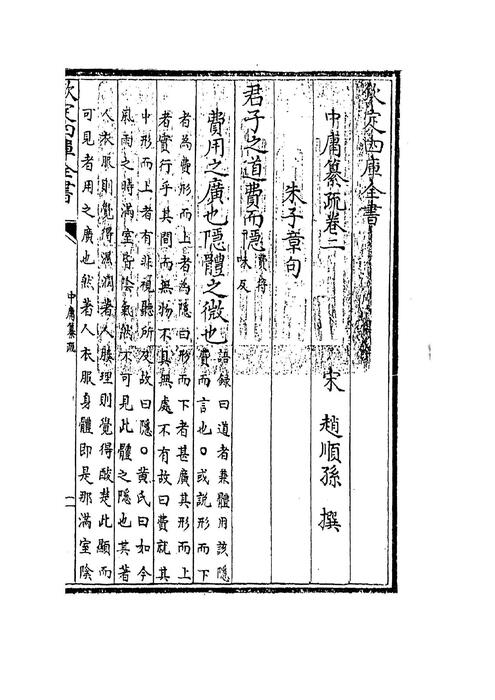 欽定四庫全書
中庸纂疏卷二
宋 趙順孫 撰
朱子章句
君子之道費而隱費符味反
費用之廣也隱體之微也語錄曰道者兼體用該隱
費而言也○或說形而下
者為費形而上者為隱曰形而下者甚廣其形而上
者實行乎其間而無物不具無處不有故曰費就其
中形而上者有非視聽所及故曰隱○黄氏曰如今
風雨之時滿室皆陰氣然不可見此體之隱也其著
人衣服則覺得濕潤著人腠理則覺得酸楚此顯而
可見者用之廣也然著人衣服身體即是那滿室陰
欽定四庫全書
中庸纂疏
一